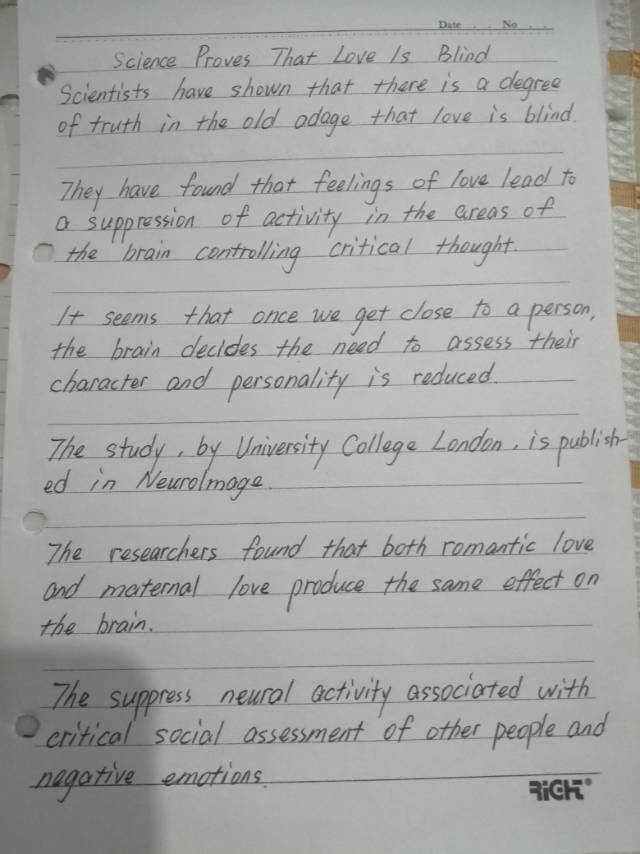 Date . . No . .
Science Proves That Love Is Blind
Scientists have shown that there is a degree
of truth in the old adage that love is blind.
They have found that feelings of love lead to
a suppression of activity in the areas of
the brain controlling critical thought.
It seems that once we get close to a person,
the brain decides the need to assess their
character and personality is reduced.
The study, by University College London, is publish-
ed in NeuroImage.
The researchers found that both romantic love
and maternal love produce the same effect on
the brain.
The suppress neural activity associated with
critical social assessment of other people and
negative emotions.
RiGHT®